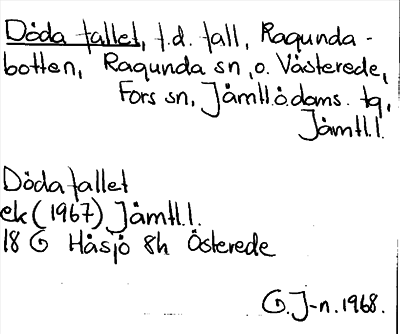 Döda fallet, f.d. fall, Ragunda-
botten, Ragunda sn, o. Västerede,
Fors sn, Jämtl. ö. doms. tg,
Jämtl. l.
Döda fallet
ek (1967) Jämtl. l.
18 G Håsjö 8h Österede
G. J-n. 1968.